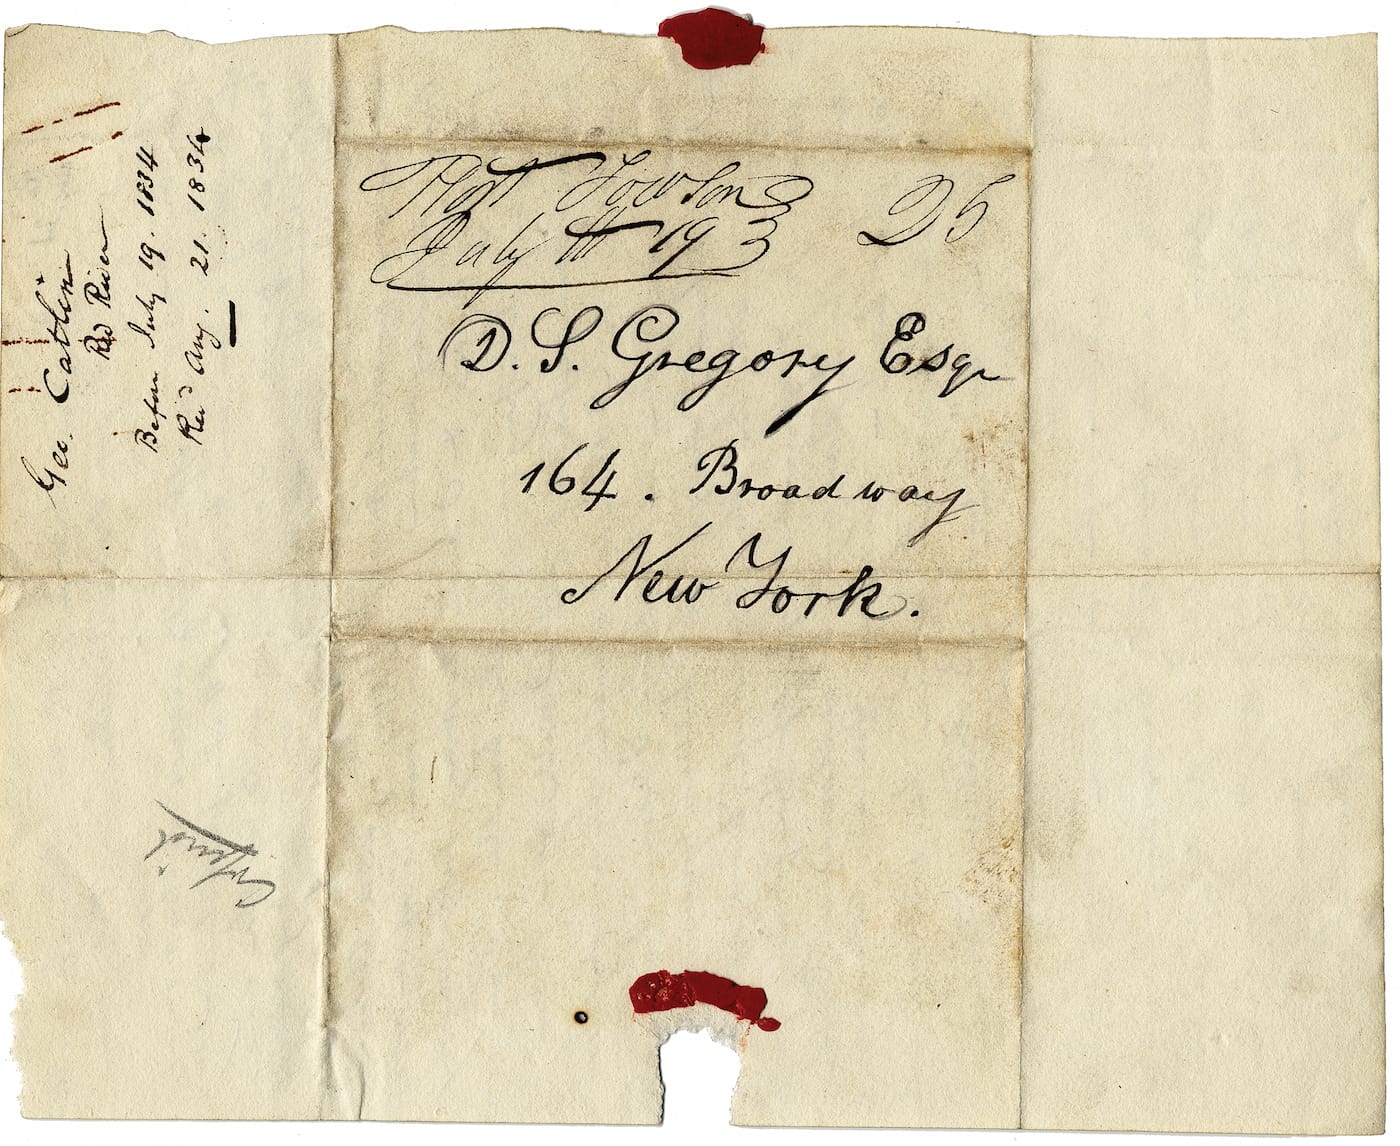 Geo. Catlin
Red River
Before July 19. 1834
Recd Aug. 21. 1834
Fort Towson
July th 19
25
D. S. Gregory Esqr
164. Broadway
New York.